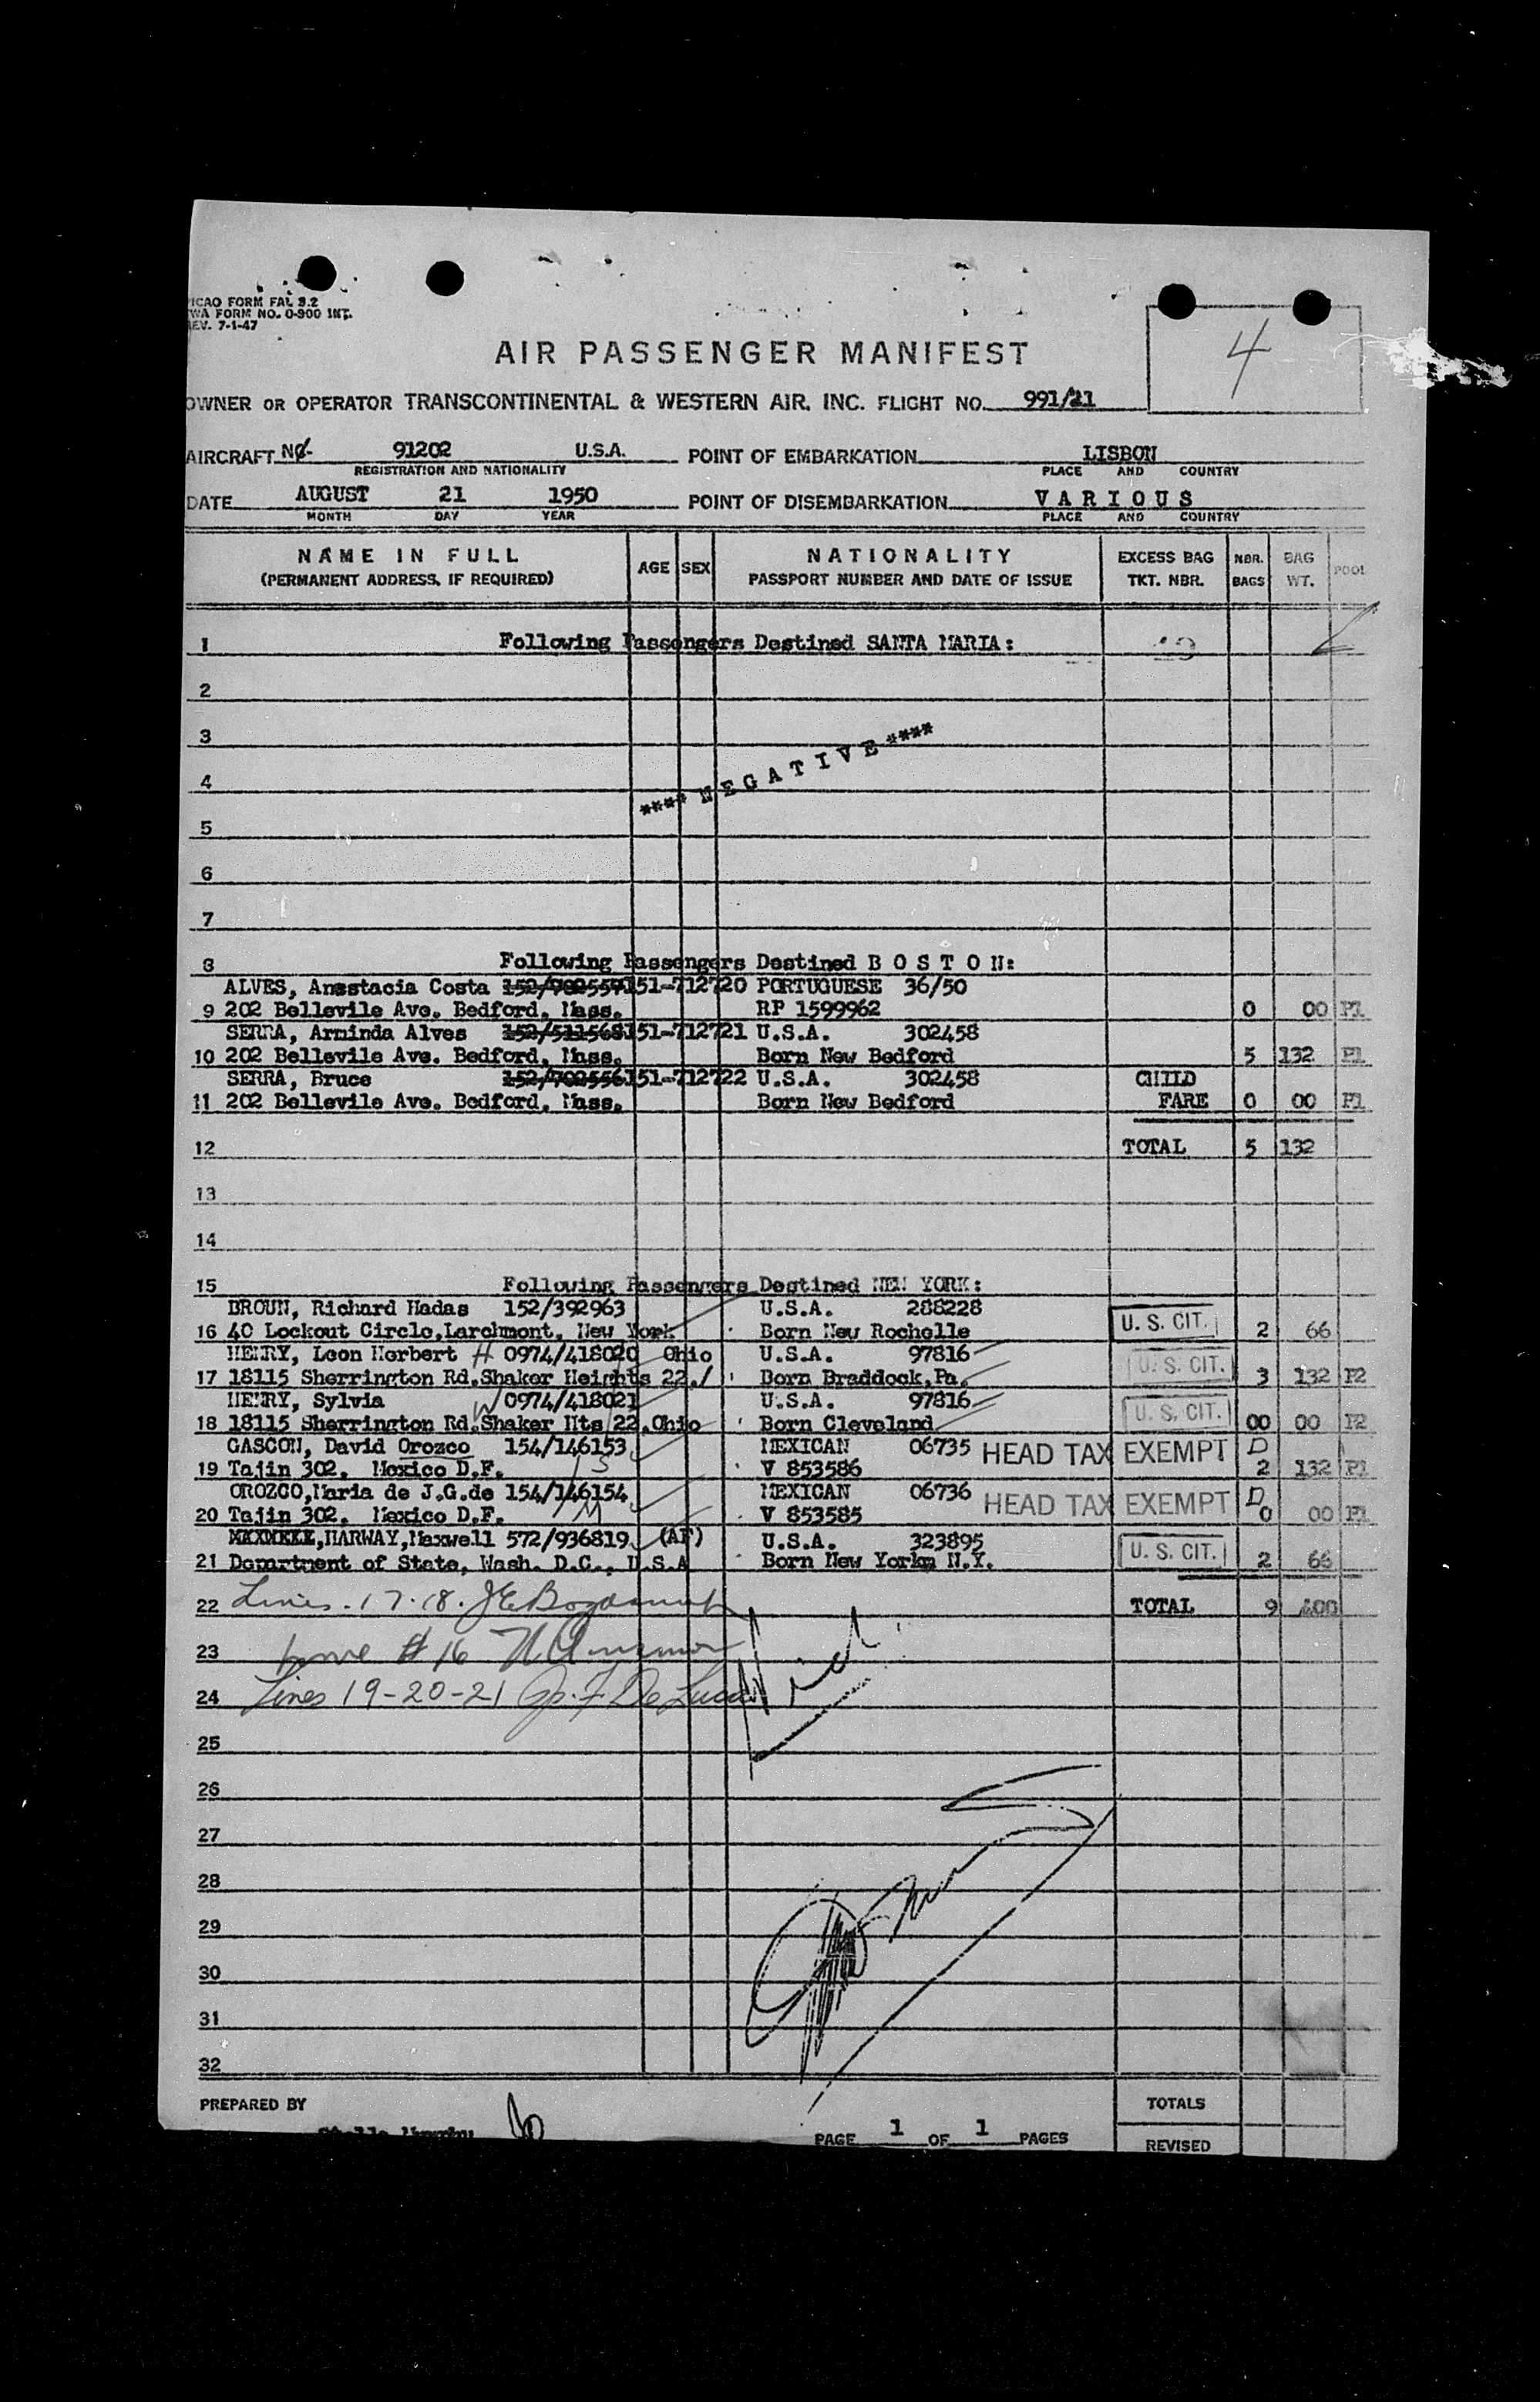 ICAO FORM FAL 3.2
TWA FORM NO. O-900 INT.
REV. 7-1-47
4
AIR PASSENGER MANIFEST
OWNER OR OPERATOR TRANSCONTINENTAL & WESTERN AIR. INC. FLIGHT NO. 991/21
AIRCRAFT NO. 91202 U.S.A. POINT OF EMBARKATION LISBON
REGISTRATION AND NATIONALITY PLACE AND COUNTRY
DATE AUGUST 21 1950 POINT OF DISEMBARKATION V A R I O U S
MONTH DAY YEAR PLACE AND COUNTRY
NAME IN FULL AGE SEX NATIONALITY EXCESS BAG NBR. BAG POOL
(PERMANENT ADDRESS, IF REQUIRED) PASSPORT NUMBER AND DATE OF ISSUE TKT. NBR. BAGS WT.
1 Following Passengers Destined SANTA MARIA:
2
3
4 **** N E G A T I V E ****
5
6
7
8 Following Passengers Destined B O S T O N:
ALVES, Anastacia Costa 151-712720 PORTUGUESE 36/50
9 202 Bellevile Ave. Bedford, Mass. RP 1599962 0 00 P1
SERRA, Arminda Alves 152/511568 151-712721 U.S.A. 302458
10 202 Bellevile Ave. Bedford, Mass. Born New Bedford 5 132 P1
SERRA, Bruce 152/702556 151-712722 U.S.A. 302458 CHILD
11 202 Bellevile Ave. Bedford, Mass. Born New Bedford FARE 0 00 P1
12 TOTAL 5 132
13
14
15 Following Passengers Destined NEW YORK:
BROUN, Richard Hadas 152/392963 U.S.A. 288228
16 40 Lockout Circle,Larchmont, New York Born New Rochelle U. S. CIT. 2 66
HENRY, Leon Herbert H 0974/418020 Ohio U.S.A. 97816
17 18115 Sherrington Rd.Shaker Heights 22./ Born Braddock,Pa. U. S. CIT. 3 132 P2
HENRY, Sylvia W 0974/418021 U.S.A. 97816
18 18115 Sherrington Rd.Shaker Hts 22,Ohio Born Cleveland U. S. CIT. 00 00 P2
GASCON, David Orozco 154/146153 MEXICAN 06735 HEAD TAX EXEMPT D
19 Tajin 302. Mexico D.F. S V 853586 2 132 P1
OROZCO,Maria de J.G.de 154/146154 MEXICAN 06736 HEAD TAX EXEMPT D
20 Tajin 302. Mexico D.F. M V 853585 0 00 P1
HARWAY,Maxwell 572/936819 (AF) U.S.A. 323895
21 Department of State, Wash. D.C., U.S.A Born New York N.Y. U. S. CIT. 2 66
22 Lines. 17.18. TOTAL 9 400
23 Line # 16
24 Lines 19-20-21 De Luca
25
26
27
28
29
30
31
32
PREPARED BY TOTALS
PAGE 1 OF 1 PAGES REVISED